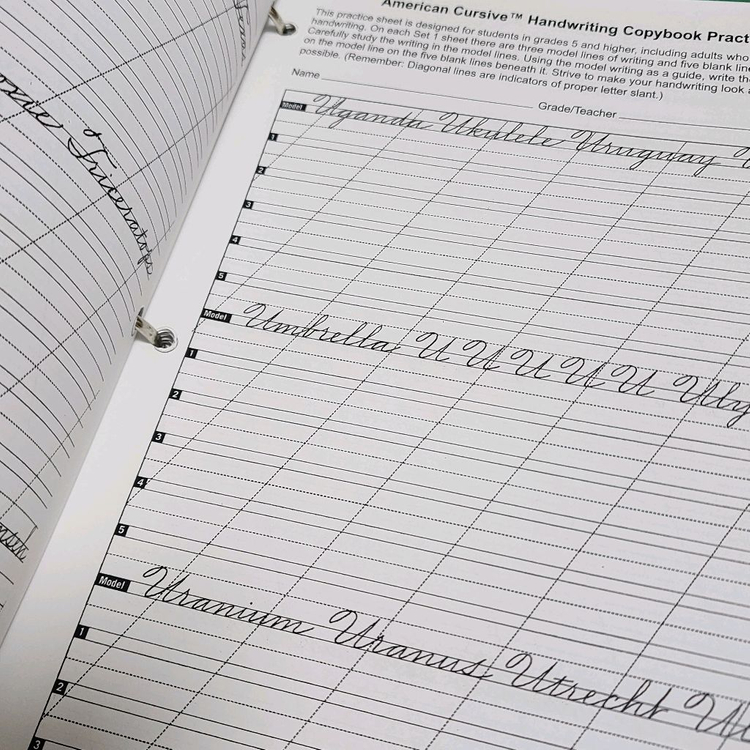 American Cursive™ Handwriting Copybook Pract
This practice sheet is designed for students in grades 5 and higher, including adults who
handwriting. On each Set 1 sheet there are three model lines of writing and five blank line
Carefully study the writing in the model lines. Using the model writing as a guide, write th
on the model line on the five blank lines beneath it. Strive to make your handwriting look a
possible. (Remember: Diagonal lines are indicators of proper letter slant.)
Name Grade/Teacher
Model Uganda Ukulele Uruguay
1
2
3
4
5
Model Umbrella U U U U U Uly
1
2
3
4
5
Model Uranium Uranus Utrecht
1
2
3
Triceratops